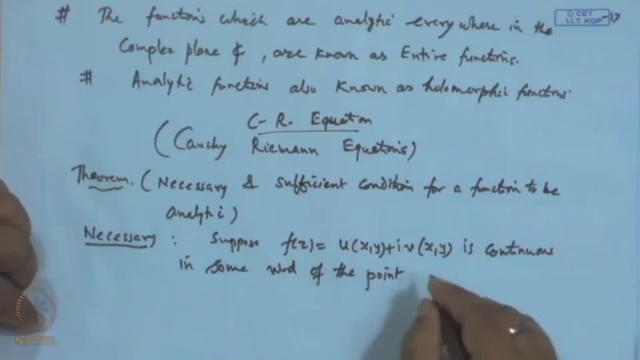 # The functions which are analytic everywhere in the
Complex plane ₵, are known as Entire functions.
# Analytic functions also known as holomorphic functions.
C-R. Equation
(Cauchy Riemann Equations)
Theorem. (Necessary & sufficient condition for a function to be
analytic)
Necessary: Suppose f(z) = u(x,y)+iv(x,y) is continuous
in some nbd of the point
© CET
I.I.T. KGP
NPTEL